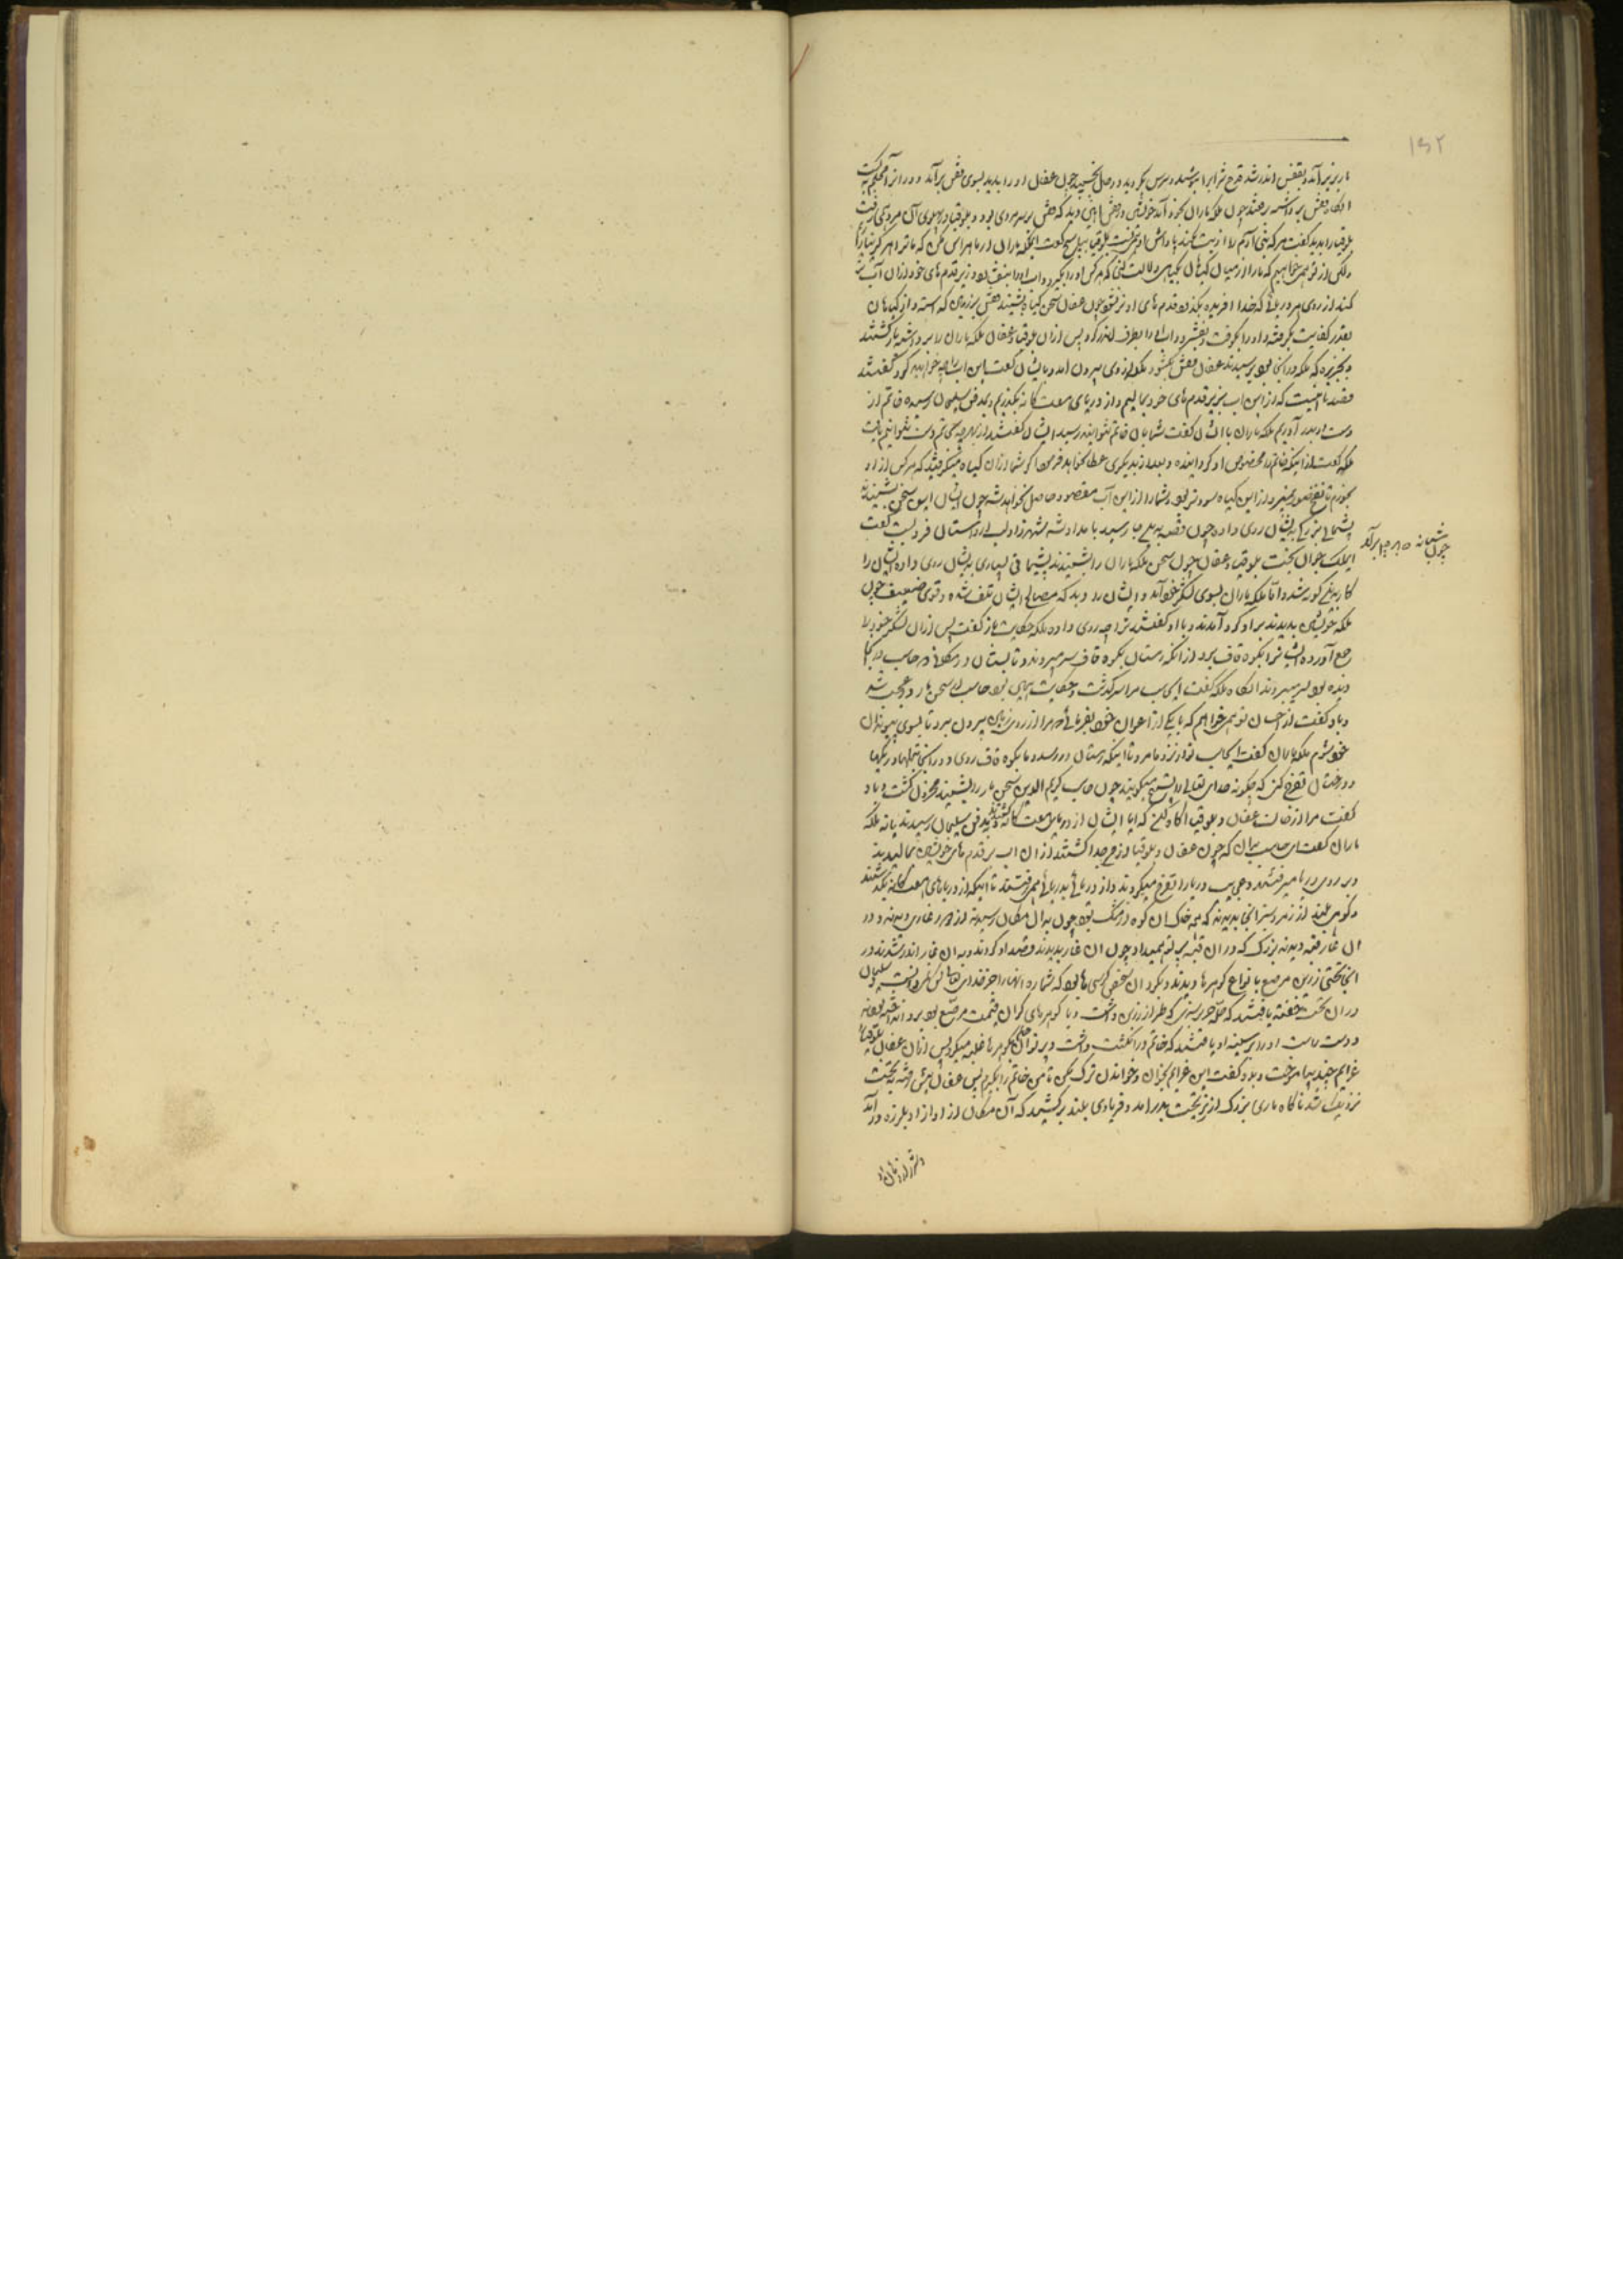 ۱۵۲
مار بزیر آمد و بقفس اندر شد قدح شراب را بنوشید و سرش بگردید و در حال بخسبید چون عفان او را بدید بسوی قفس برآمد و در از آن محکم ببست
آنگاه قفس برداشته برفتند چون ملکه ماران بخود آمد خویشتن در قفس آهنین دید که قفس بر سر مردی بود و بلوقیا در پهلوی آن مرد همی رفت
بلوقیا را بدید گفت هر که بنی آدم را اذیت نکند پاداش او همین است بلوقیا بپاسخ گفت ای ملکه ماران از ما هراس مکن که ما ترا هرگز نیازاریم
ولکن از تو همی خواهیم که ما را از میان گیاهان بگیاهی دلالت کنی که هر کس او را بگیرد و آب او را بیفشارد و زیر قدم های خود از آن آب تر
کند از روی هر دریائی که خدا آفریده بگذرد قدم های او تر نشود چون عفان سخن گیاه بشنید قفس بر زمین گذاشته و از گیاهان
بقدر کفایت بگرفته و او را بکوفت و بفشرد و آب او را بظرف اندر کرد پس از آن بلوقیا و عفان ملکه ماران را برداشته بازگشتند
بجزیره که ملکه در آنجا بود برسیدند عفان قفس بگشود ملکه از وی بیرون آمد و بایشان گفت باین آب چه خواهید کرد گفتند
قصد ما اینست که از این آب بزیر قدم های خود بمالیم و از دریای هفت گانه بگذریم و بمدفن سلیمان رسیده خاتم از
دست او بدر آوریم ملکه ماران با ایشان گفت شما بآن خاتم نتوانید رسید ایشان گفتند از بهر چه بخاتم دست نتوانیم یافت
ملکه گفت از اینکه خاتم را مخصوص او گردانیده و بعد از او بدیگری عطا نخواهد فرمود اگر شما از آن گیاه میگرفتید که هر کس از او
بخورد تا نفخ صور نمیرد از این گیاه سودتر بود و شما را از این آب مقصود حاصل نخواهد شد چون ایشان این سخن بشنیدند
پشیمانی بزرگ بایشان روی داد چون قصه بدینجا رسید بامداد شد شهرزاد لب از داستان فرو بست گفت
چون شب چهارصد و هشتاد و پنجم برآمد
ای ملک جوان بخت بلوقیا و عفان چون سخن ملکه ماران را بشنیدند پشیمانی بسیاری بایشان روی داد ایشان را
کار بدینگونه شد و اما ملکه ماران بسوی لشگر خود آمد و ایشان را دید که مصالح ایشان تلف شده و قوی ضعیف چون
ملکه خویش بدیدند بر او گرد آمدند و با او گفتند ترا چه روی داده ملکه حکایت باز گفت پس از آن لشگر خود را
جمع آورده ایشان را بکوه قاف برد از آنکه زمستان بکوه قاف بسر میبردند و تابستان در مکانی که حاسب در آنجا
دیده بود بسر میبردند آنگاه ملکه گفت ای حاسب مرا سرگذشت و حکایت همین بود حاسب از سخن مار در عجب شد
و باو گفت از احسان تو همی خواهم که یکی از اعوان خود بفرمائی که مرا از روی زمین بیرون برد تا بسوی پیوندان
خود شوم ملکه ماران گفت ای حاسب تو از نزد ما مرو تا اینکه زمستان در رسد و ما بکوه قاف روی و در آنجا تلها و ریگها
و درختان تفرج کن که چگونه خدای تعالی را تسبیح میگویند چون حاسب کریم الدین سخن مار را بشنید محزون گشت و باو
گفت مرا از حالت عفان و بلوقیا آگاه کن که آیا ایشان از دریای هفت گانه گذشته و بمدفن سلیمان رسیدند یا نه ملکه
ماران گفت ای حاسب بدان که چون عفان و بلوقیا از من جدا گشتند از آن آب بر قدم های خویشتن بمالیدند
و بر روی دریا میرفتند و عجایب دریا را تفرج میکردند و از دریائی بدریائی همی رفتند تا اینکه از دریاهای هفت گانه بگذشتند
و کوهی بلند از زمرد سبز آنجا بدیدند که همه خاک آن کوه از مشک بود چون بدان مکان رسیدند از دور غاری دیدند و در
آن غار قبه دیدند بزرگ که در آن قبه پرتو همی داد چون آن غار بدیدند قصد او کردند و بدان غار اندر شدند و در
آنجا تختی زرین مرصع بانواع گوهرها دیدند و بگرد آن تخت کرسی ها بود که شماره آنها را جز خدای تعالی کس ندانست و سلیمان
در آن تخت خفته یافتند که حله حریر سبزی که طراز زرین داشت و با گوهرهای گران قیمت مرصع بود بر او انداخته بودند
و دست راست او را بر سینه او یافتند که خاتم در انگشت داشت و پرتو آن خاتم بگوهرها غلبه میکرد پس آنگاه عفان بلوقیا را
عزایم چند بیاموخت و بدو گفت این عزایم بخوان و خواندن ترک مکن تا من خاتم را بگیرم پس عفان پیش رفته به تخت
نزدیک شد ناگاه ماری بزرگ از زیر تخت بدر آمد و فریادی بلند برکشید که آن مکان از آواز او بلرزه درآمد
و شرار از دهان او